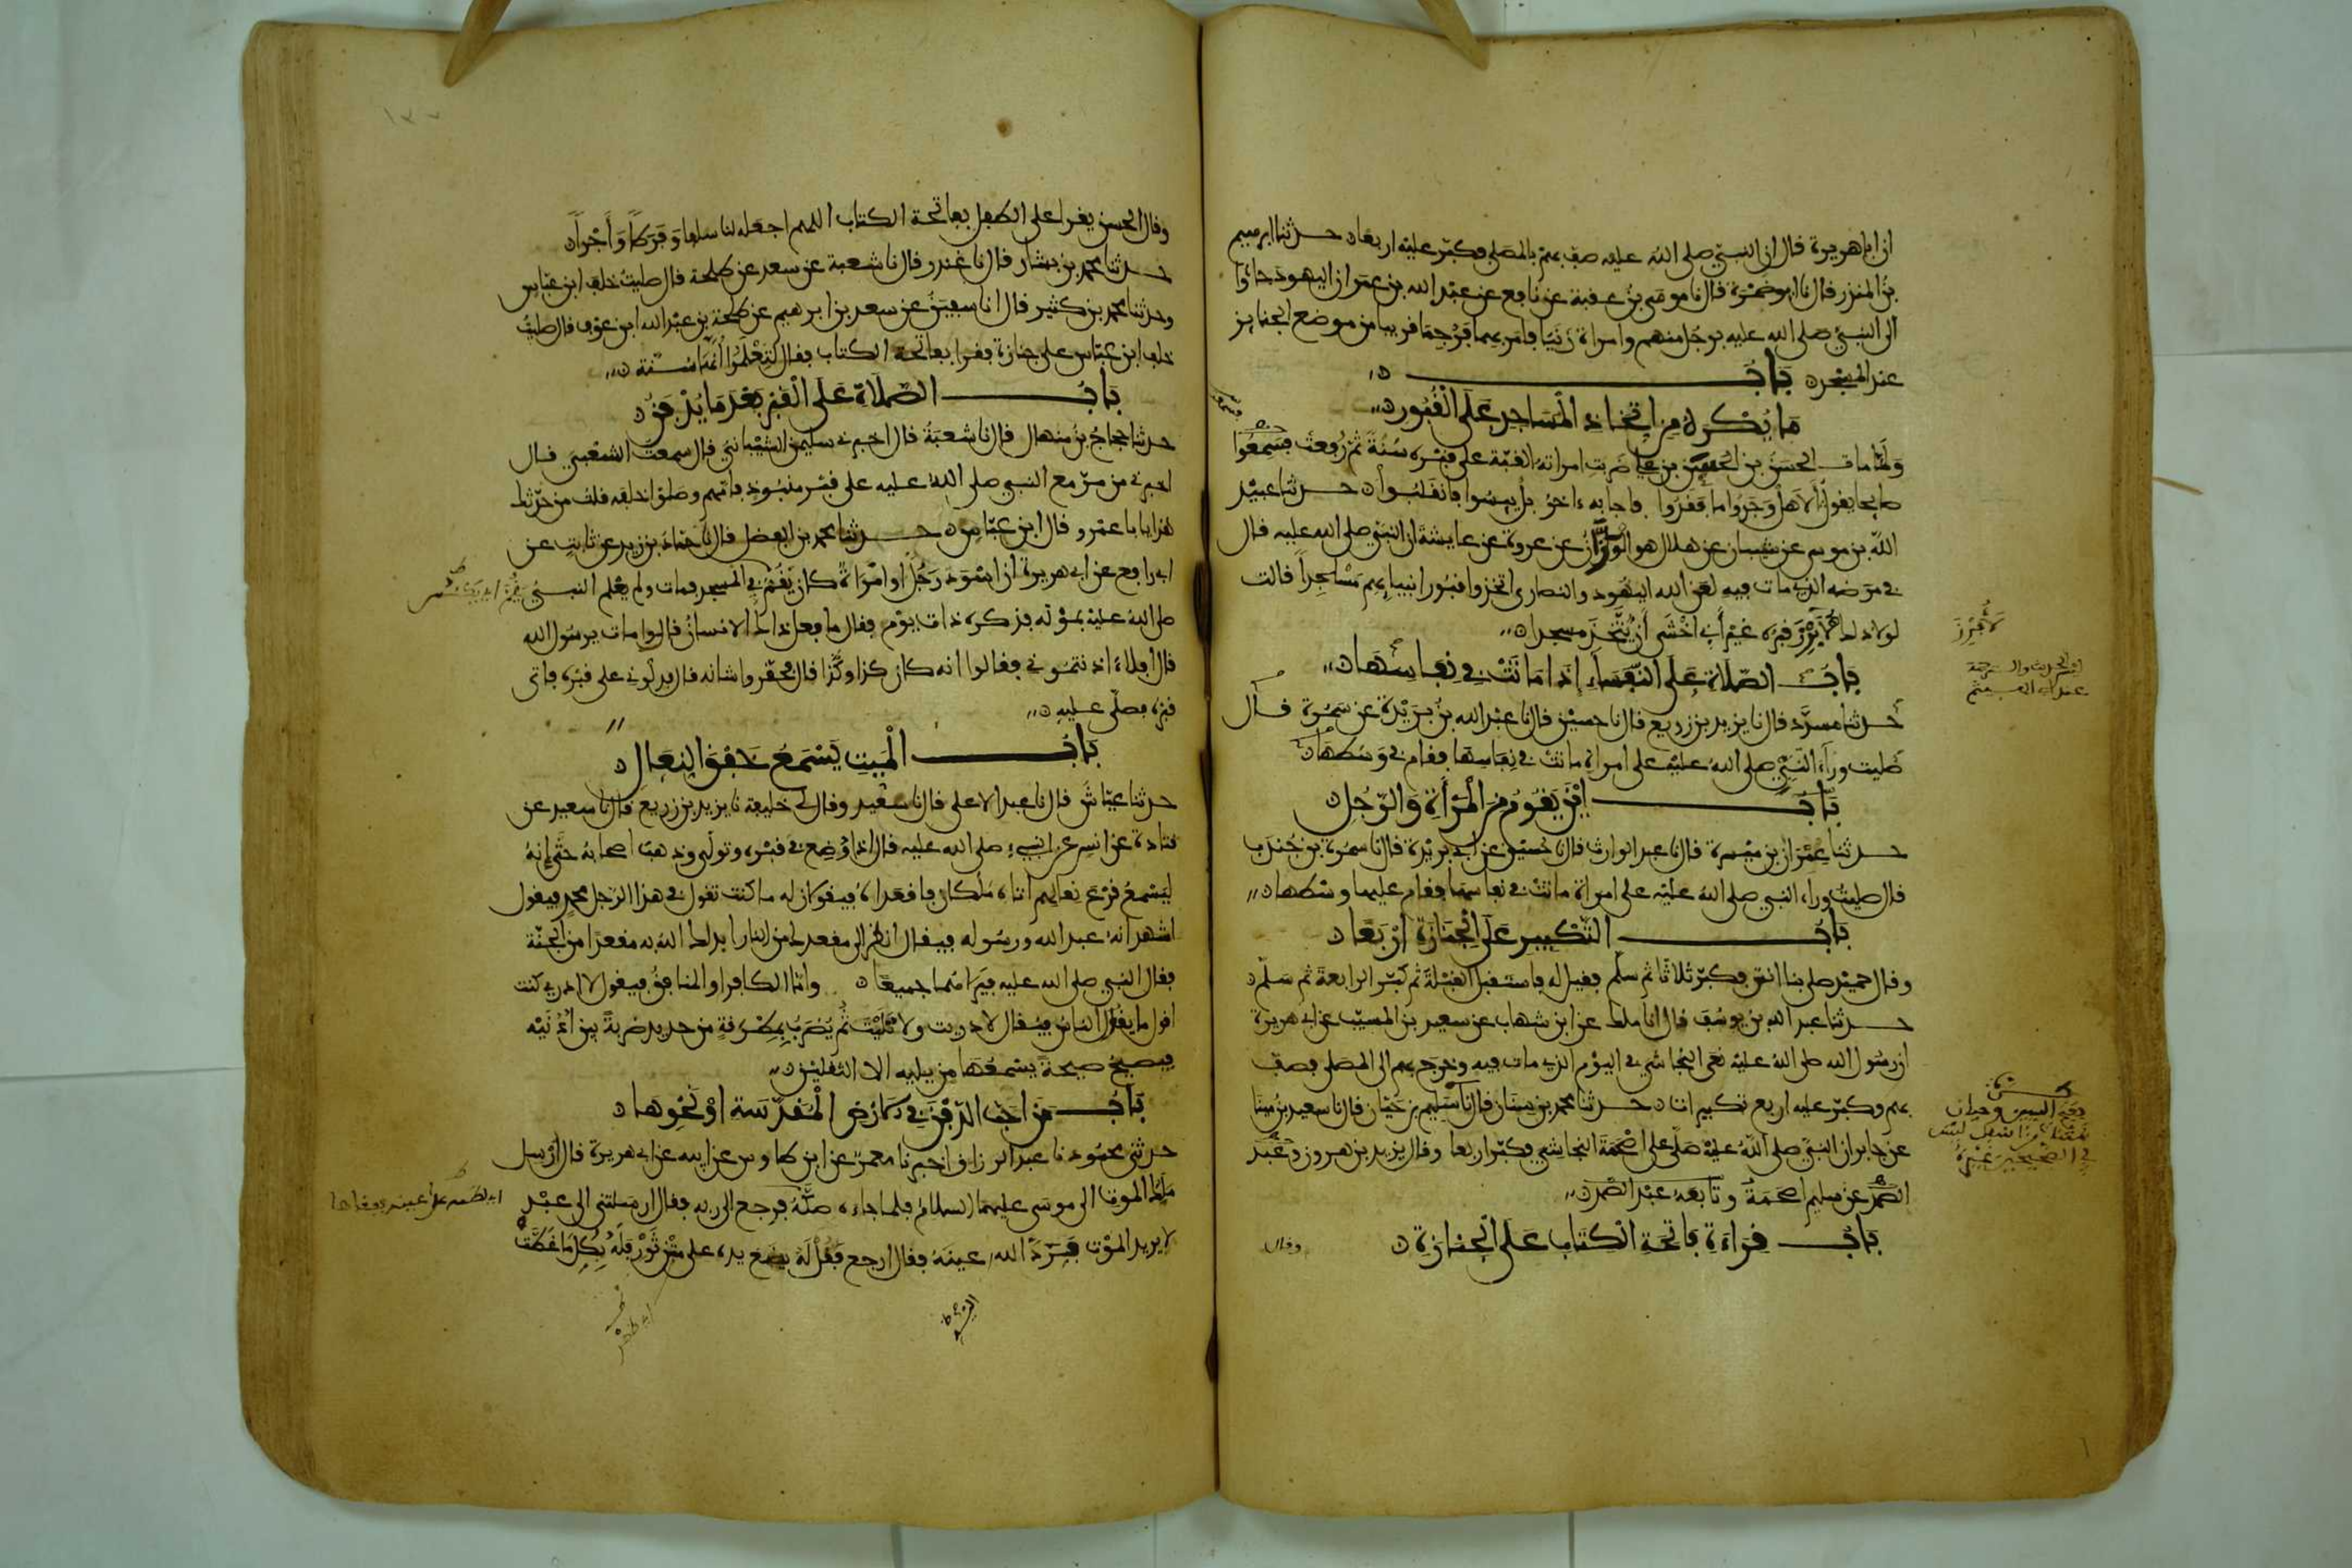 ان ابا هريرة قال ان النبي صلى الله عليه صف بهم بالمصلى فكبر عليه اربعا حدثنا ابرهيم
بن المنذر قال نا ابو ضمرة قال نا موسى بن عقبة عن نافع عن عبد الله بن عمر ان اليهود جاؤا
الى النبي صلى الله عليه برجل منهم وامراة زنيا فامر بهما فرجما قريبا من موضع الجنايز
عند المسجد باب
ما يكره من اتخاذ المساجد على القبور
ولما مات الحسن بن الحسن بن علي ضربت امراته القبة على قبره سنة ثم رفعت فسمعوا
صايحا يقول الا هل وجدوا ما فقدوا فاجابه اخر بل يئسوا فانقلبوا حدثنا عبيد
الله بن موسى عن شيبان عن هلال هو الوزان عن عروة عن عايشة ان النبي صلى الله عليه قال
في مرضه الذي مات فيه لعن الله اليهود والنصارى اتخذوا قبور انبيايهم مسجدا قالت
لولا ذلك لابرز قبره غير اني اخشى ان يتخذ مسجدا
باب الصلاة على النفساء اذا ماتت في نفاسها
حدثنا مسدد قال نا يزيد بن زريع قال نا حسين قال نا عبد الله بن بريدة عن سمرة قال
صليت وراء النبي صلى الله عليه على امراة ماتت في نفاسها فقام في وسطها
باب اين يقوم من المرأة والرجل
حدثنا عمران بن ميسرة قال نا عبد الوارث قال نا حسين عن ابن بريدة قال نا سمرة بن جندب
قال صليت وراء النبي صلى الله عليه على امراة ماتت في نفاسها فقام عليها وسطها
باب التكبير على الجنازة اربعا
وقال حميد صلى بنا انس فكبر ثلاثا ثم سلم فقيل له فاستقبل القبلة ثم كبر الرابعة ثم سلم
حدثنا عبد الله بن يوسف قال انا ملك عن ابن شهاب عن سعيد بن المسيب عن ابي هريرة
ان رسول الله صلى الله عليه نعى النجاشي في اليوم الذي مات فيه وخرج بهم الى المصلى فصف
بهم وكبر عليه اربع تكبيرات حدثنا محمد بن سنان قال نا سليم بن حيان قال نا سعيد بن مينا
عن جابر ان النبي صلى الله عليه صلى على اصحمة النجاشي فكبر اربعا وقال يزيد بن هرون وعبد
الصمد عن سليم اصحمة وتابعه عبد الصمد
باب قراءة فاتحة الكتاب على الجنازة
وقال
وقال الحسن يقرا على الطفل بفاتحة الكتاب اللهم اجعله لنا سلفا وفرطا وأجرا
حدثنا محمد بن بشار قال نا غندر قال نا شعبة عن سعد عن طلحة قال صليت خلف ابن عباس
وحدثنا محمد بن كثير قال انا سفين عن سعد بن ابرهيم عن طلحة بن عبد الله ابن عوف قال صليت
خلف ابن عباس على جنازة فقرا بفاتحة الكتاب فقال لتعلموا أنها سنة
باب الصلاة على القبر بعد ما يدفن
حدثنا حجاج بن منهال قال نا شعبة قال اخبرني سليمن الشيباني قال سمعت الشعبي قال
اخبرني من مر مع النبي صلى الله عليه على قبر منبوذ فامهم وصلوا خلفه قلت من حدثك
هذا يابا عمرو قال ابن عباس حدثنا محمد بن الفضل قال نا حماد بن زيد عن ثابت عن
ابي رافع عن ابي هريرة ان اسود رجلا او امراة كان يقم في المسجد فمات ولم يعلم النبي
صلى الله عليه بموته فذكره ذات يوم فقال ما فعل ذلك الانسان قالوا مات يرسول الله
قال افلا اذنتموني فقالوا انه كان كذا وكذا قال فحقروا شانه قال فدلوني على قبره فاتى
قبره فصلى عليه
باب الميت يسمع خفق النعال
حدثنا عياش قال نا عبد الاعلى قال نا سعيد وقال لي خليفة نا يزيد بن زريع قال نا سعيد عن
قتادة عن انس عن النبي صلى الله عليه قال اذا وضع في قبره وتولى وذهب اصحابه حتى إنه
ليسمع قرع نعالهم اتاه ملكان فاقعداه فيقولان له ما كنت تقول في هذا الرجل محمد فيقول
اشهد انه عبد الله ورسوله فيقال انظر الى مقعدك من النار ابدلك الله به مقعدا من الجنة
فقال النبي صلى الله عليه فيراهما جميعا واما الكافر او المنافق فيقول لا ادري كنت
اقول ما يقول الناس فيقال لا دريت ولا تليت ثم يضرب بمطرقة من حديد ضربة بين اذنيه
فيصيح صيحة يسمعها من يليه الا الثقلين
باب من احب الدفن في الارض المقدسة او نحوها
حدثني محمود نا عبد الرزاق اخبرنا معمر عن ابن طاوس عن ابيه عن ابي هريرة قال ارسل
ملك الموت الى موسى عليهما السلام فلما جاءه صكه فرجع الى ربه فقال ارسلتني الى عبد
لا يريد الموت فرد الله عينه فقال ارجع فقل له يضع يده على متن ثور فله بكل ما غطت